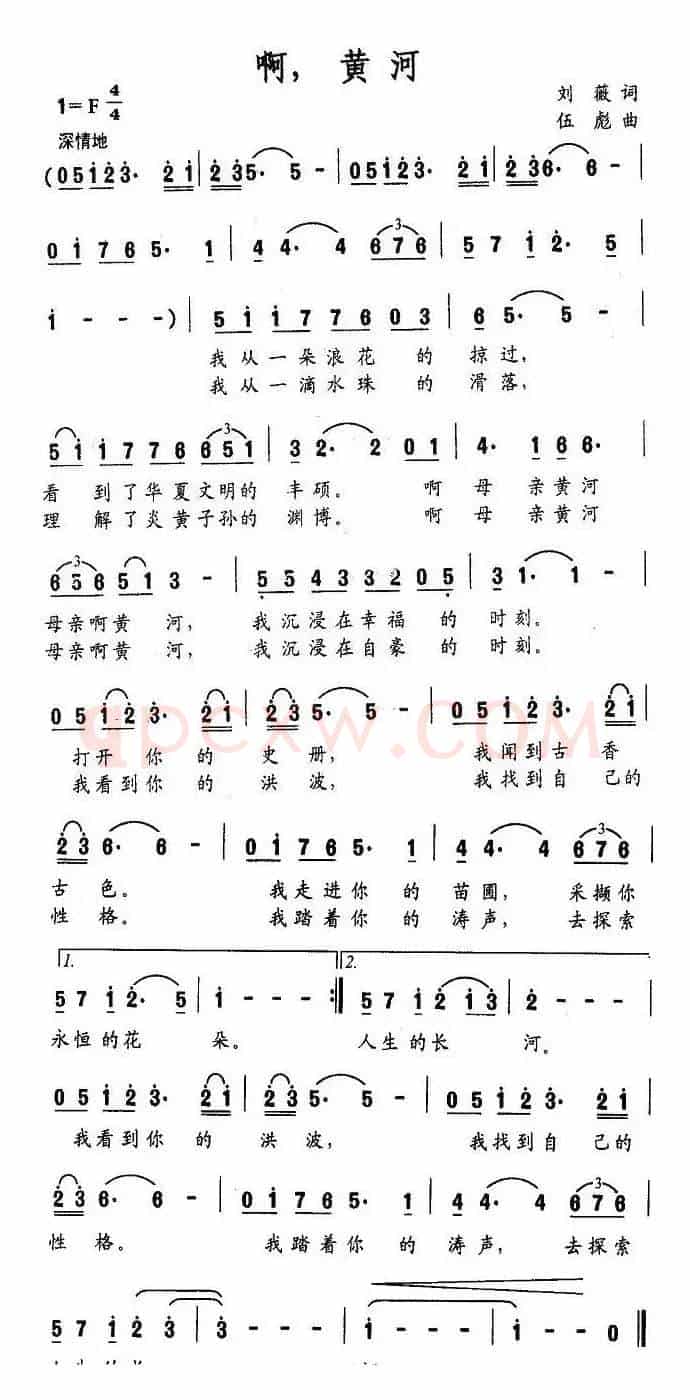 啊，黄河
1=F 4/4
刘薇词
伍彪曲
深情地
(0 5 1 2 3· 2 1 | 2 3 5· 5 - | 0 5 1 2 3· 2 1 | 2 3 6· 6 - |
0 1 7 6 5· 1 | 4 4· 4 6 7 6 | 5 7 1 2· 5 |
1 - - -) | 5 1 1 7 7 6 0 3 | 6 5· 5 - |
我从一朵浪花的掠过，
我从一滴水珠的滑落，
5 1 1 7 7 6 6 5 1 | 3 2· 2 0 1 | 4· 1 6 6· |
看到了华夏文明的丰硕。啊母亲黄河
理解了炎黄子孙的渊博。啊母亲黄河
6 5 6 5 1 3 - | 5 5 4 3 3 2 0 5 | 3 1· 1 - |
母亲啊黄河，我沉浸在幸福的时刻。
母亲啊黄河，我沉浸在自豪的时刻。
0 5 1 2 3· 2 1 | 2 3 5· 5 - | 0 5 1 2 3· 2 1 |
打开你的史册，我闻到古香
我看到你的洪波，我找到自己的
2 3 6· 6 - | 0 1 7 6 5· 1 | 4 4· 4 6 7 6 |
古色。我走进你的苗圃，采撷你
性格。我踏着你的涛声，去探索
1. 2.
5 7 1 2· 5 | 1 - - - :‖ 5 7 1 2 1 3 | 2 - - - |
永恒的花朵。人生的长河。
0 5 1 2 3· 2 1 | 2 3 5· 5 - | 0 5 1 2 3· 2 1 |
我看到你的洪波，我找到自己的
2 3 6· 6 - | 0 1 7 6 5· 1 | 4 4· 4 6 7 6 |
性格。我踏着你的涛声，去探索
5 7 1 2 3 | 3 - - - | 1 - - - | 1 - - 0 ‖
qpcxw.COM